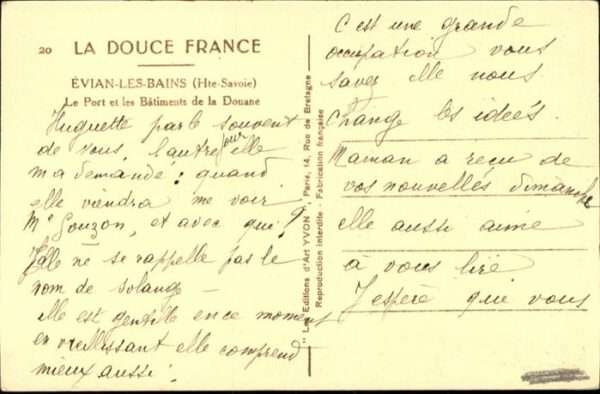 20 LA DOUCE FRANCE
ÉVIAN-LES-BAINS (Hte-Savoie)
Le Port et les Bâtiments de la Douane
Huguette parle souvent
de vous, l'autre jour elle
m'a demandé : quand
elle viendra me voir
Me Gouzon, et avec qui ?
Elle ne se rappelle pas le
nom de Solange —
elle est gentille en ce moment
en vieillissant elle comprend
mieux aussi.
"Les Editions d'Art YVON", Paris, 14, Rue de Bretagne
Reproduction interdite - Fabrication française
C'est une grande
occupation vous
savez elle nous
change les idées.
Maman a reçu de
vos nouvelles dimanche
elle aussi aime
à vous lire
J'espère que vous